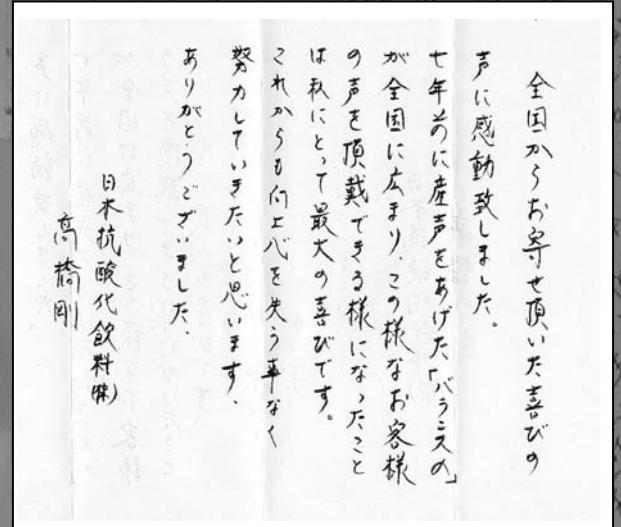 全国からお寄せ頂いた喜びの
声に感動致しました。
七年前に産声をあげた「バランスα」
が全国に広まり、この様なお客様
の声を頂戴できる様になったこと
は私にとって最大の喜びです。
これからも向上心を失う事なく
努力していきたいと思います、
ありがとうございました、
日本抗酸化飲料㈱
高橋剛